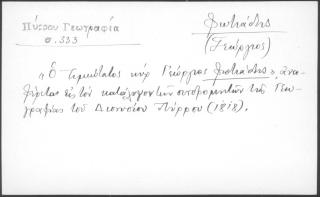 Πύρρου Γεωγραφία
σ. 333
Φωτιάδης
(Γεώργιος)
"Ὁ τιμιώτατος κὺρ Γεώργιος Φωτιάδης", ἀνα-
φέρεται εἰς τὸν κατάλογον τῶν συνδρομητῶν τῆς Γεω-
γραφίας τοῦ Διονυσίου Πύρρου (1818).